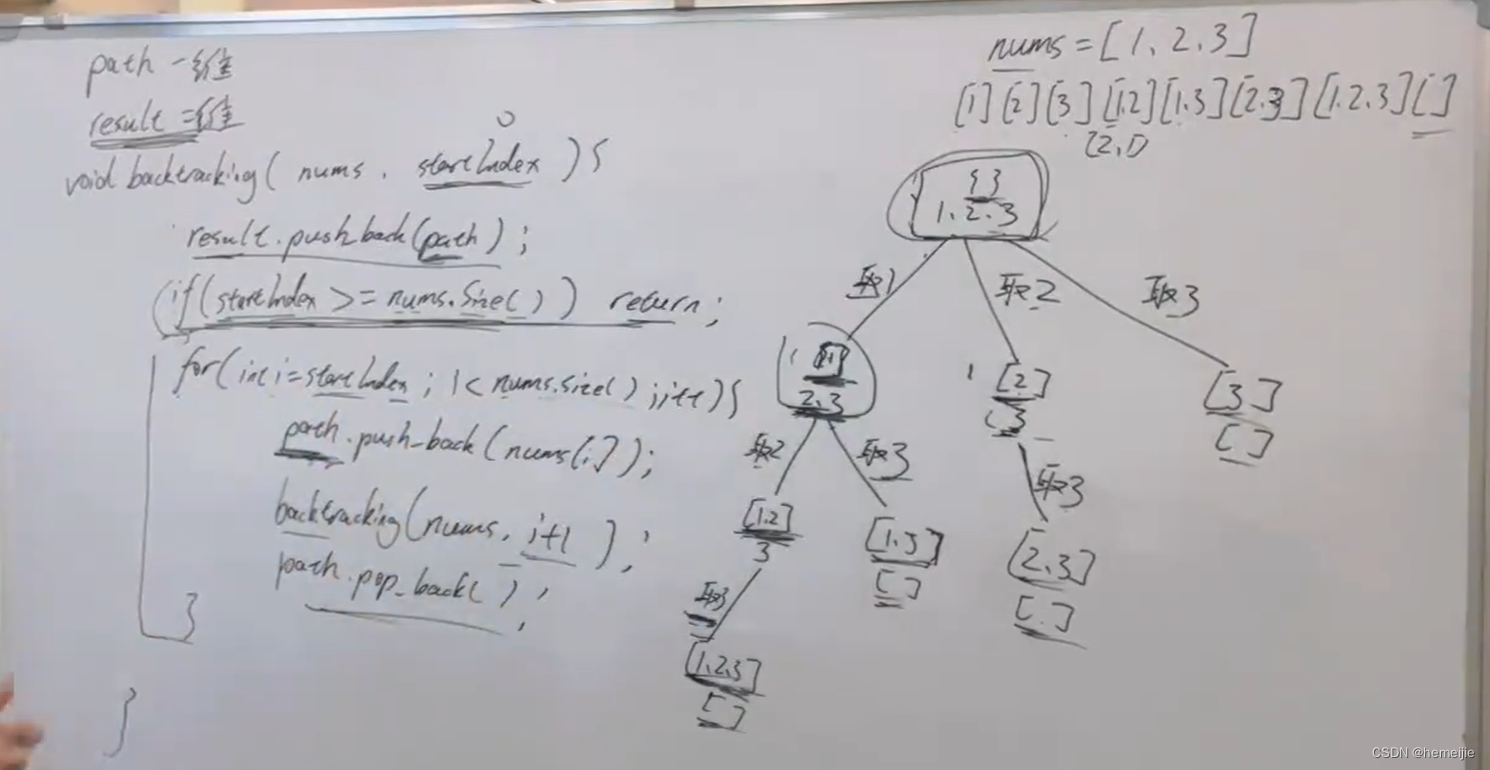 path 一维
result 二维
0
void backtracking( nums, startIndex ){
result.push_back(path);
if(startIndex >= nums.size()) return;
for(int i=startIndex; i< nums.size(); i++){
path.push_back(nums[i]);
backtracking(nums, i+1 );
path.pop_back( );
}
}
nums = [1、2、3]
[1] [2] [3] [1.2] [1.3] [2.3] [1.2.3] [ ]
[2,1]
{ }
1.2.3
取1 取2 取3
[1]
2.3
[2]
[3
[3]
[ ]
取2 取3
取3
[1.2]
3
[1.3]
[ ]
[2.3]
[ ]
取3
[1.2.3]
[ ]
CSDN @hemeijie